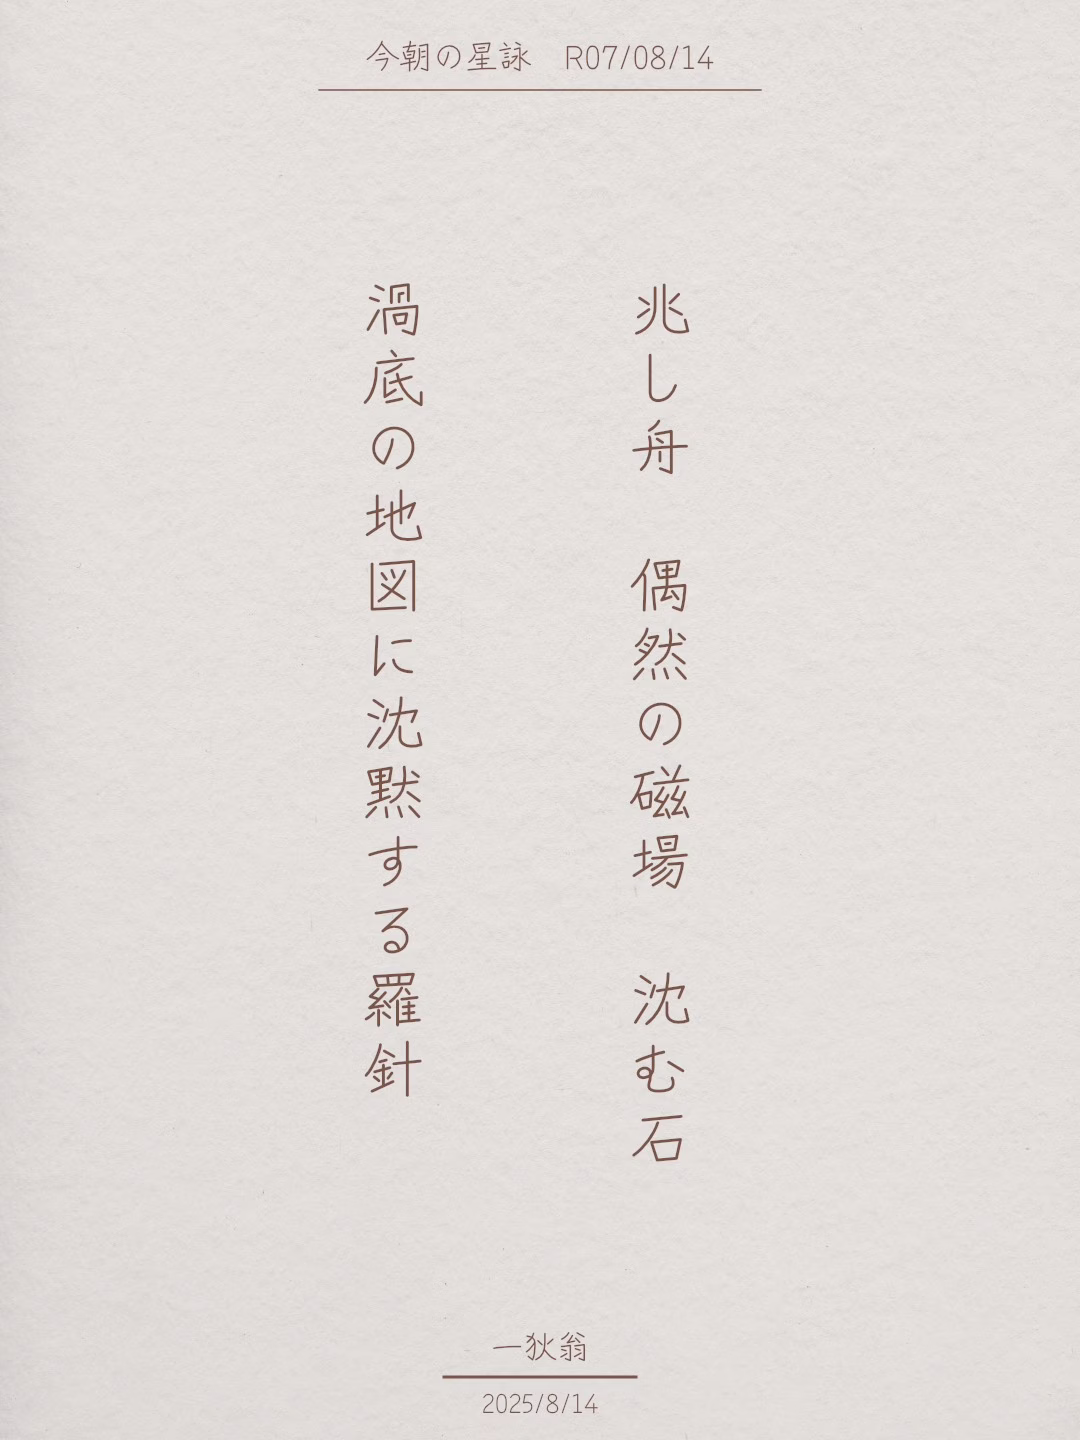 今朝の星詠　R07/08/14
兆し舟　偶然の磁場　沈む石
渦底の地図に沈黙する羅針
一狄翁
2025/8/14